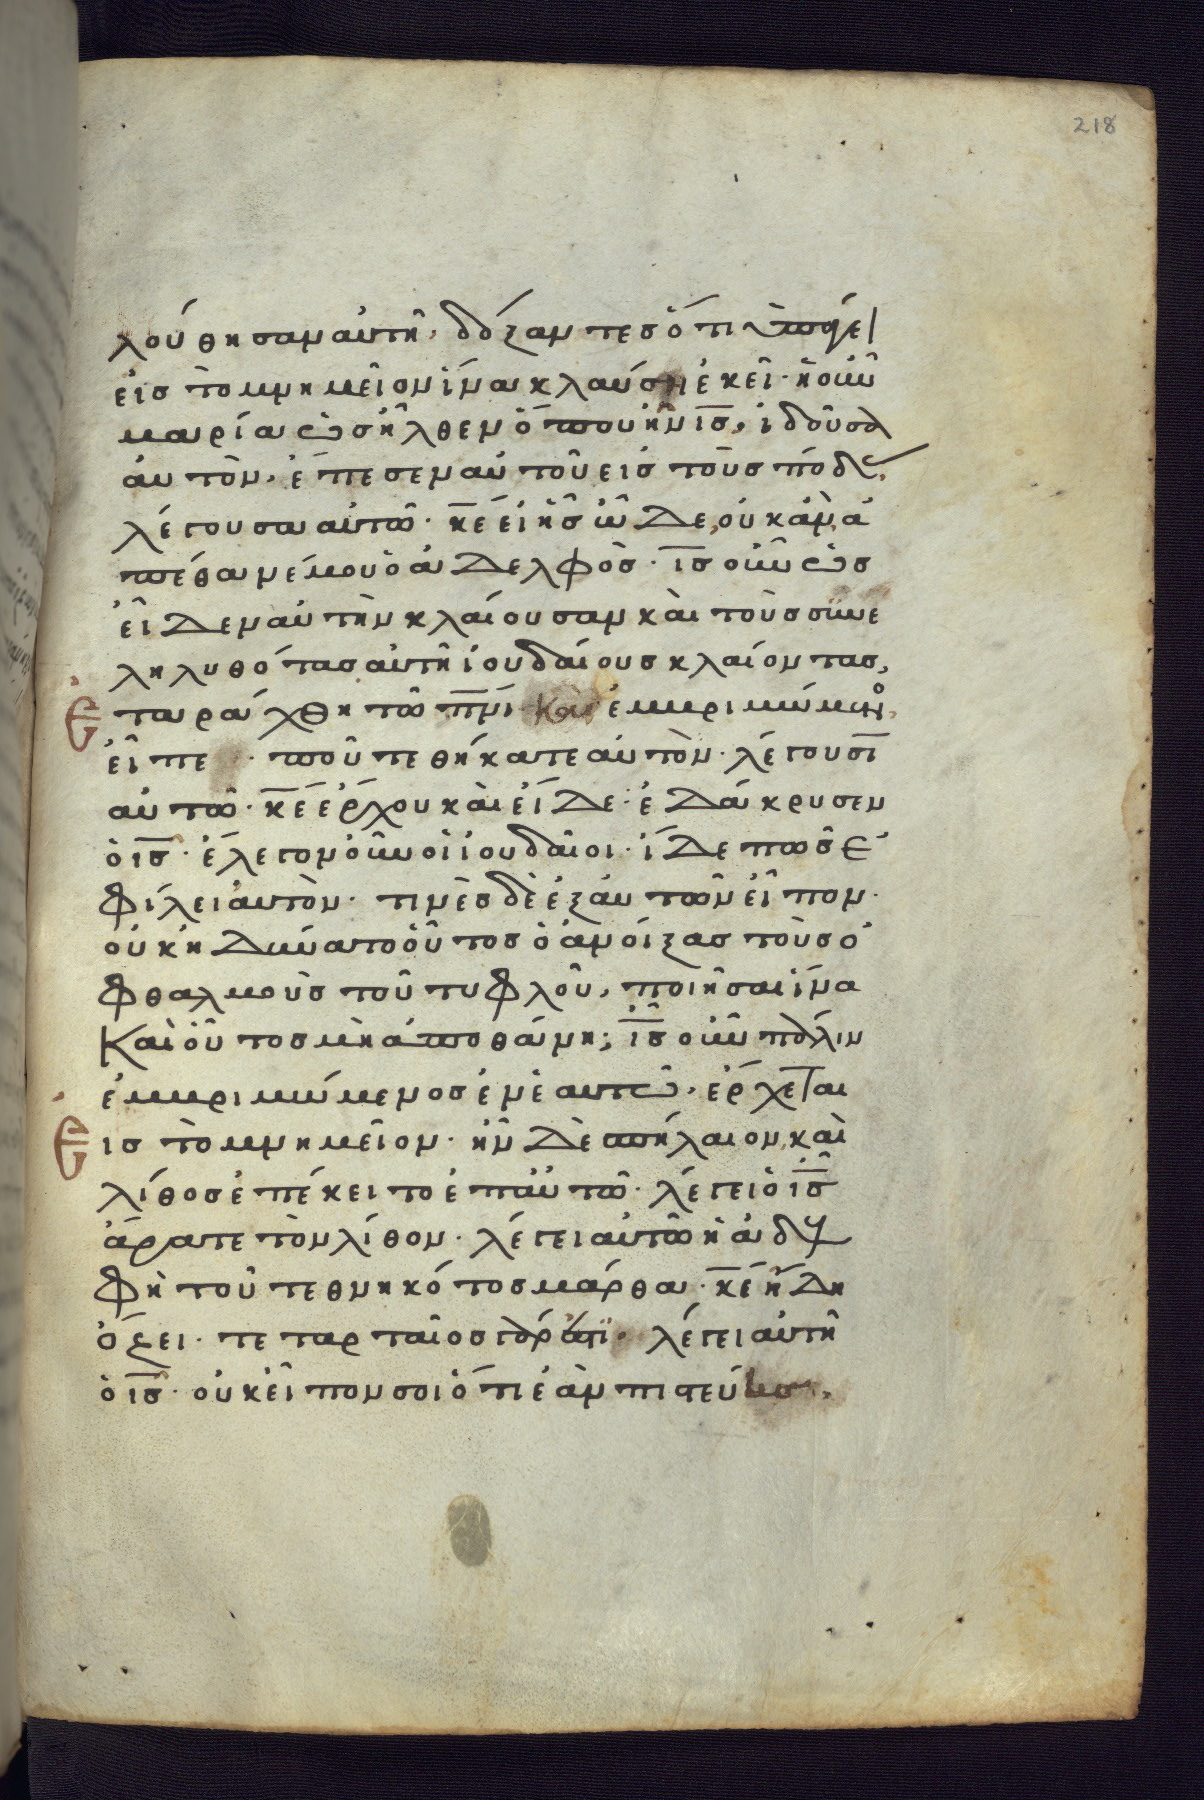 218
λούθησαν αὐτῆ, δόξαντες ὅτι ὑπάγει
εἰς τὸ μνημεῖον ἵνα κλαύση ἐκεῖ· ἡ οὖν
μαρία ὡς ἦλθεν ὅπου ἦν ις, ἰδοῦσα
αὐτὸν, ἔπεσεν αὐτοῦ εἰς τοὺς πόδας,
λέγουσα αὐτῶ· κε εἰ ἦς ὧδε, οὐκ ἂν ἀ
πέθανέ μου ὁ ἀδελφὸς· ις οὖν ὡς
εἶδεν αὐτὴν κλαίουσαν καὶ τοὺς συνε
ληλυθότας αὐτῆ ἰουδαίους κλαίοντας,
ἐταράχθη τῶ πνι καὶ ἐμβριμώμενος,
εἶπε · ποῦ τεθήκατε αὐτὸν· λέγουσι
αὐτῶ· κε ἔρχου καὶ εἴδε· ἐδάκρυσεν
ὁ ις· ἔλεγον οὖν οἱ ἰουδαῖοι· ἴδε πῶς ἐ
φίλει αὐτὸν· τινὲς δὲ ἐξ αὐτῶν εἶπον·
οὐκ ἠδύνατο οὗτος ὁ ἀνοίξας τοὺς ὀ
φθαλμοὺς τοῦ τυφλοῦ, ποιῆσαι ἵνα
καὶ οὗτος μὴ ἀποθάνη; ις οὖν πάλιν
ἐμβριμώμενος ἐν ἑαυτῶ, ἔρχεται
εἰς τὸ μνημεῖον· ἦν δὲ σπήλαιον, καὶ
λίθος ἐπέκειτο ἐπ αὐτῶ· λέγει ὁ ις
ἄρατε τὸν λίθον· λέγει αὐτῶ ἡ ἀδελ
φὴ τοῦ τεθνηκότος μάρθα· κε ἤδη
ὄζει· τεταρταῖος γάρ ἐστι· λέγει αὐτῆ
ὁ ις· οὐκ εἶπον σοι ὅτι ἐὰν πιστεύσης,